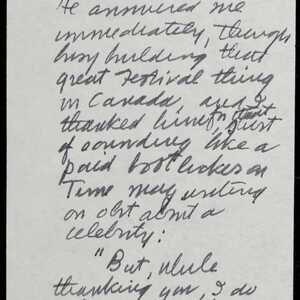 He answered me
immediately, though
busy building that
great Festival thing
in Canada, and I
thanked him, in
of sounding like a
paid bootlicker on
Time mag writing
an obit about a
celebrity:
"But, while
thanking you, I do